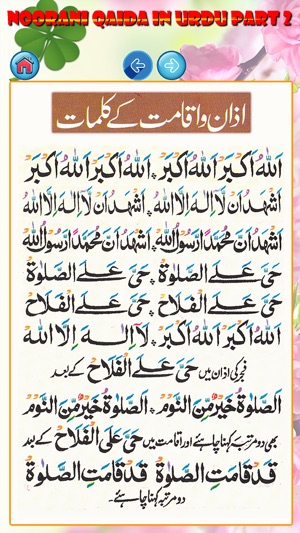 NOORANI QAIDA IN URDU PART 2
اذان واقامت کے کلمات
اَللّٰهُ اَكْبَرُ اَللّٰهُ اَكْبَرُ ۞ اَللّٰهُ اَكْبَرُ اَللّٰهُ اَكْبَرُ
اَشْهَدُ اَنْ لَّا اِلٰهَ اِلَّا اللّٰهُ ۞ اَشْهَدُ اَنْ لَّا اِلٰهَ اِلَّا اللّٰهُ
اَشْهَدُ اَنَّ مُحَمَّدًا رَّسُوْلُ اللّٰهِ ۞ اَشْهَدُ اَنَّ مُحَمَّدًا رَّسُوْلُ اللّٰهِ
حَیَّ عَلَی الصَّلٰوةِ ۞ حَیَّ عَلَی الصَّلٰوةِ
حَیَّ عَلَی الْفَلَاحِ ۞ حَیَّ عَلَی الْفَلَاحِ
اَللّٰهُ اَكْبَرُ اَللّٰهُ اَكْبَرُ ۞ لَاۤ اِلٰهَ اِلَّا اللّٰهُ
فجر کی اذان میں حَیَّ عَلَی الْفَلَاحِ کے بعد
اَلصَّلٰوةُ خَیْرٌ مِّنَ النَّوْمِ ۞ اَلصَّلٰوةُ خَیْرٌ مِّنَ النَّوْمِ
بھی دو مرتبہ کہنا چاہئے اور اقامت میں حَیَّ عَلَی الْفَلَاحِ کے بعد
قَدْ قَامَتِ الصَّلٰوةُ قَدْ قَامَتِ الصَّلٰوةُ
دو مرتبہ کہنا چاہئے۔